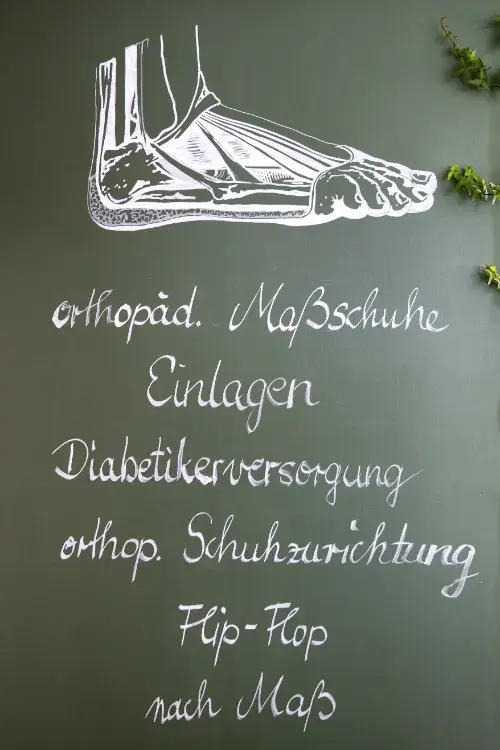 orthopäd. Maßschuhe
Einlagen
Diabetikerversorgung
orthop. Schuhzurichtung
Flip-Flop
nach Maß